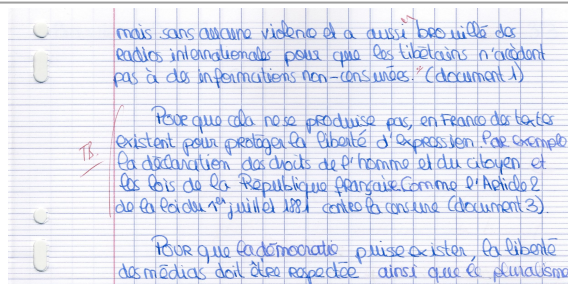 mais sans aucune violence et a aussi brouillé des
radios internationales pour que les tibétains n'accèdent
pas à des informations non-censurées." (document 1)
Pour que cela ne se produise pas, en France des textes
TB.
existent pour protéger la liberté d'expression. Par exemple
la déclaration des droits de l'homme et du citoyen et
les lois de la République française comme l'Article 2
de la loi du 1er juillet 1881 contre la censure (document 3).
Pour que la démocratie puisse exister, la liberté
des médias doit être respectée ainsi que le pluralisme